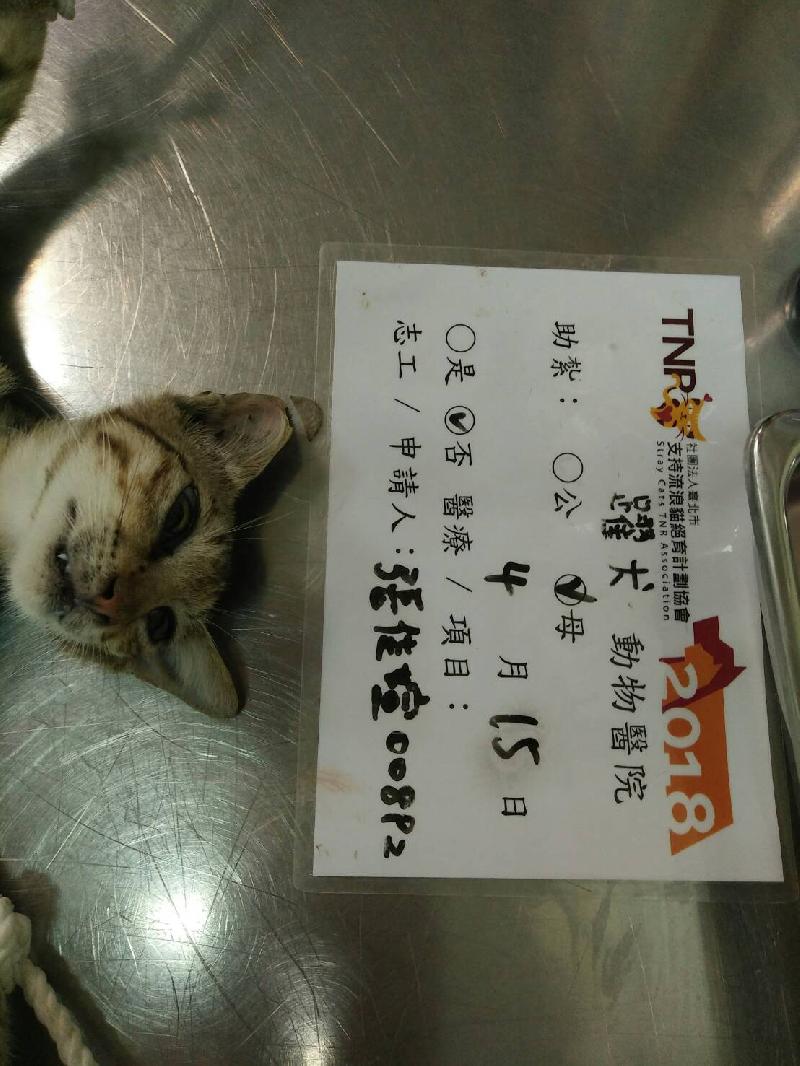 TNR
社團法人臺北市
支持流浪貓絕育計劃協會
Stray Cats TNR Association
2018
犬 動物醫院
助紮： ○公 ✓母
4 月 15 日
○是 ✓否 醫療 / 項目：
志工 / 申請人：張佳瑄008P2